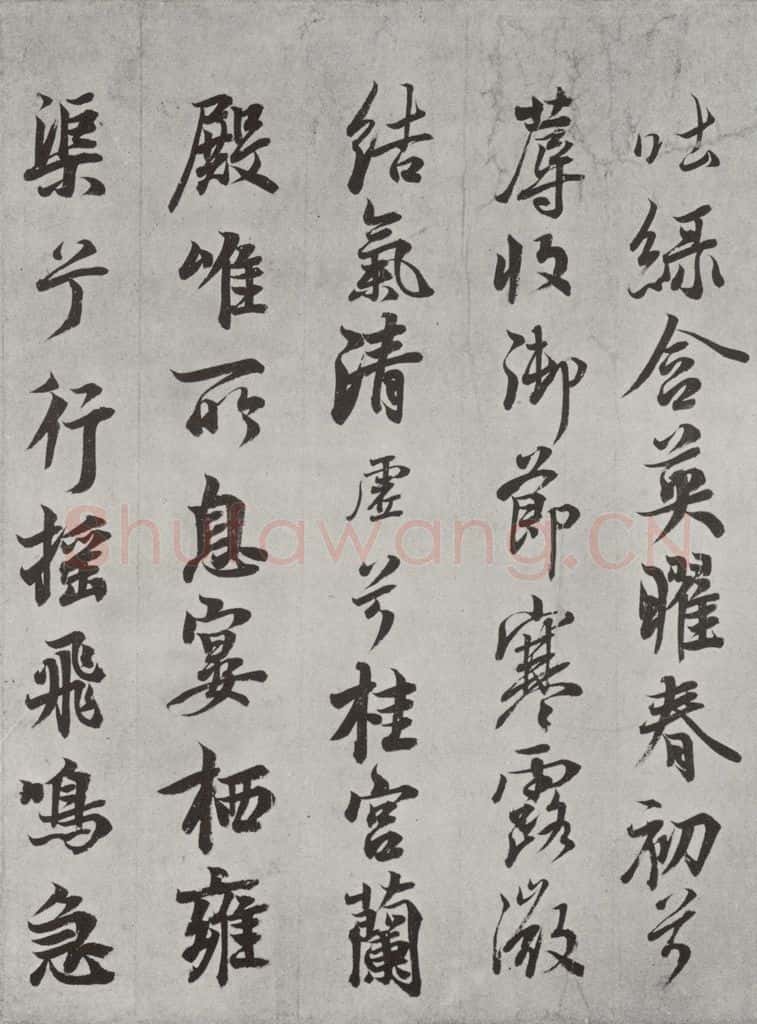 吐緑含英曜春初兮
蓐收御節寒露微
結氣清虛兮桂宮蘭
殿唯所息宴栖雍
渠兮行搖飛鳴急
Shufawang.CN